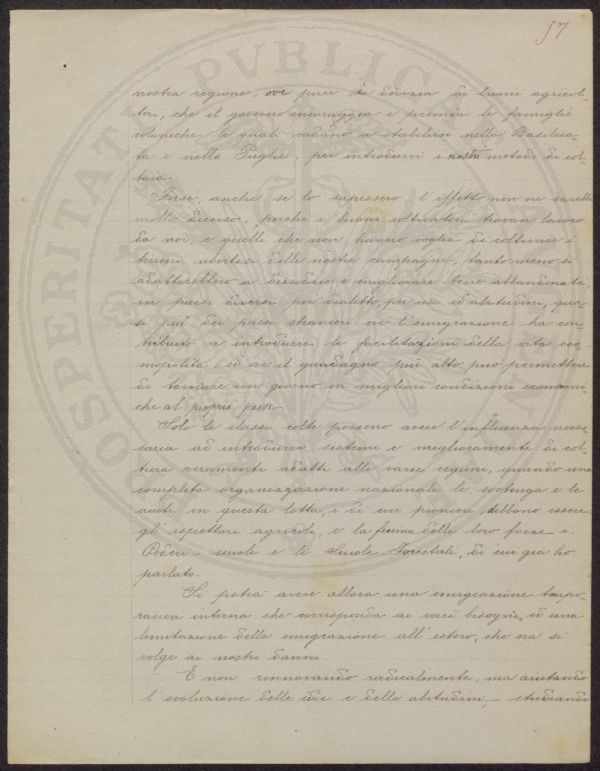 57
nostra regione, ove pure è dovizia di buoni agricol-
tori, che il governo incoraggia e premia le famiglie
coloniche le quali vadino a stabilirsi nella Basilica-
ta e nelle Puglie, per introdurvi i nostri metodi di col-
tura.
Forse, anche se lo sapessero l'effetto non ne sarebbe
molto diverso, perchè i buoni coltivatori trovan lavoro
da noi, e quelli che non hanno voglia di coltivare i
terreni ubertosi delle nostre campagne, tanto meno si
adatterebbero a dissodare e migliorare terre abbandonate,
in paesi diversi per dialetto, per usi ed abitudini, qua-
si più dei paesi stranieri ove l'emigrazione ha con
tribuito a introdurre le facilitazioni della vita cos-
mopolita, ed ove il guadagno più alto può permettere
di tornare un giorno in migliori condizioni economi-
che al proprio paese.
Solo le classi colte possono avere l'influenza neces-
saria ad introdurre sistemi e miglioramenti di col-
tura veramente adatti alle varie regioni, quando una
completa organizzazione nazionale le sostenga e le
aiuti in questa lotta, di cui pionieri debbono essere
gl'ispettori agricoli, e la fucina delle loro forze i
Poderi - scuole e le Scuole Forestali, di cui già ho
parlato.
Si potrà avere allora una emigrazione tempo-
ranea interna che corrisponda ai varii bisogni, ed una
limitazione della emigrazione all'estero, che ora si
volge ai nostri danni.
E non rinnovando radicalmente, ma aiutando
l'evoluzione delle idee e delle abitudini, - studiando
PROSPERITATI PVBLICAE